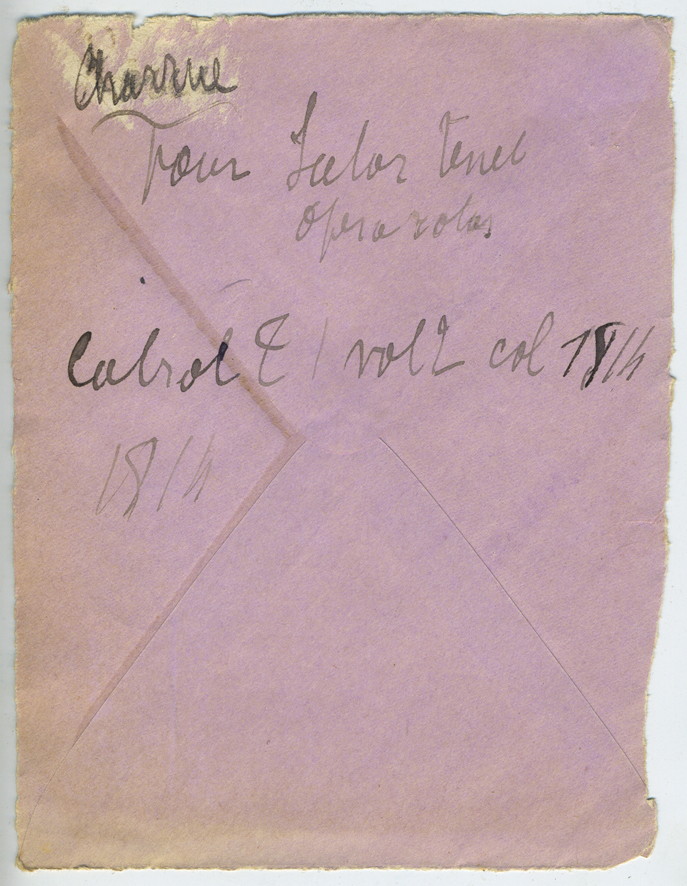 Charrue
pour Sator tenet
opera rotas
Cabrol t 1 vol 2 col 1814
1814